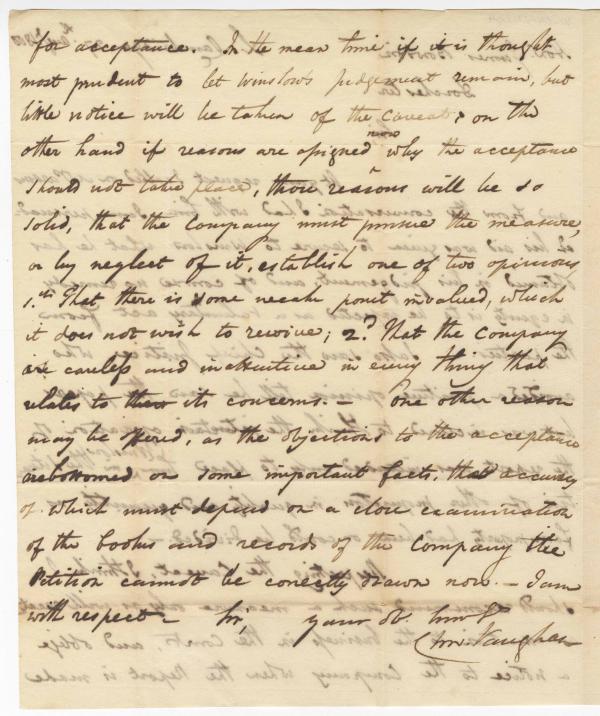 for acceptance. In the mean time if it is thought
most prudent to let Winslow's judgement remain, but
little notice will be taken of the caveat, on the
other hand if reasons are assigned now why the acceptance
should not take place, those reasons will be so
solid, that the Company must pursue the measure,
or by neglect of it, establish one of two opinions,
1.st That there is some weak point involved, which
it does not wish to revive; 2.d That the Company
are careless and inattentive in every thing that
relates to its concerns. — One other reason
may be offered, as the objections to the acceptance
are bottomed on some important facts, that accuracy
of which must depend on a close examination
of the books and records of the Company the
Petition cannot be correctly drawn now. — I am
with respect — Sir, your ob. hum St
Chs Vaughan